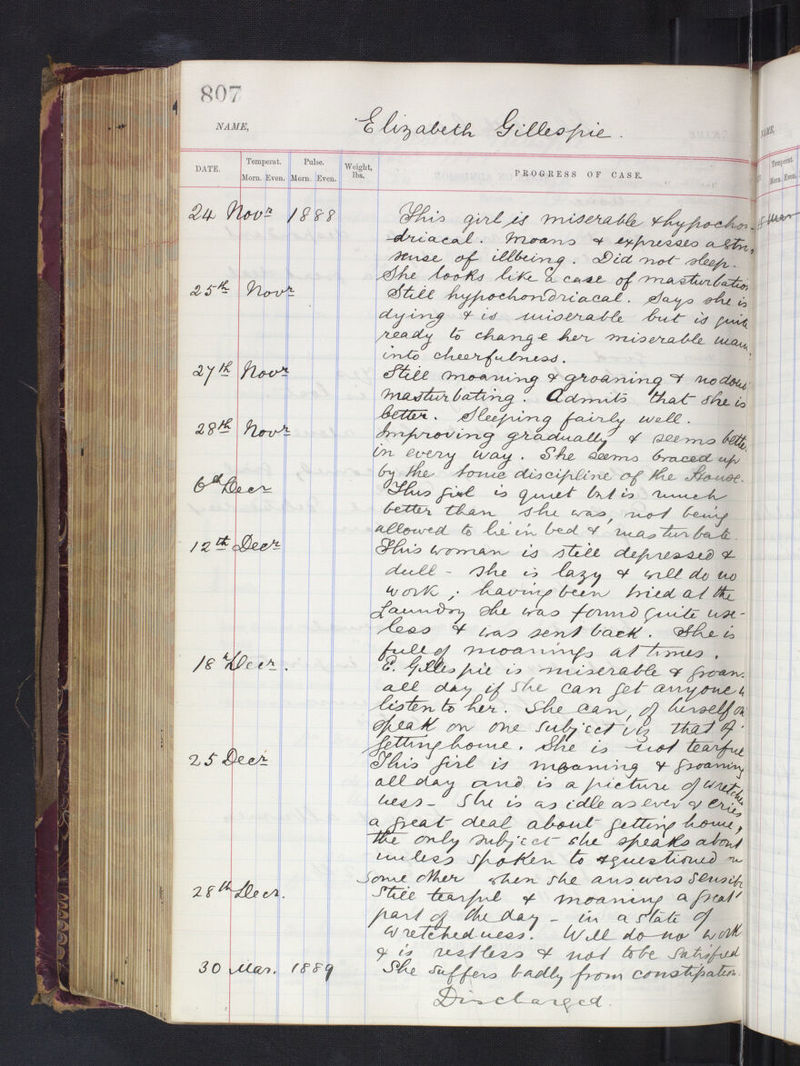 807
NAME,
Elizabeth Gillespie.
DATE. Temperat. Pulse. Weight, lbs. PROGRESS OF CASE.
Morn. Even. Morn. Even.
24 Novr 1888 This girl is miserable & hypochon-
driacal. Moans & expresses a
sense of illbeing. Did not sleep.
She looks like a case of masturbation
25th Novr Still hypochondriacal. Says she is
dying & is miserable but is quite
ready to change her miserable
into cheerfulness.
27th Novr Still moaning & groaning & no doubt
masturbating. Admits that she is
better. Sleeping fairly well.
28th Novr Improving gradually & seems better
in every way. She seems braced up
by the tonic discipline of the House.
6th Decr This girl is quiet but is much
better than she was, not being
allowed to lie in bed & masturbate.
12th Decr This woman is still depressed &
dull - she is lazy & will do no
work; having been tried at the
Laundry she was found quite use-
less & was sent back. She is
full of moanings at times.
18th Decr. E. Gillespie is miserable & groans
all day if she can get anyone to
listen to her. She can, of herself on
speak on one subject viz that of
getting home. She is not tearful
25 Decr This girl is moaning & groaning
all day and is a picture of wretched
ness - She is as idle as ever & cries
a great deal about getting home,
the only subject she speaks about
unless spoken to & questioned on
some other when she answers sensibly
28th Decr. Still tearful & moaning a great
part of the day - in a state of
wretchedness. Will do no work
& is restless & not to be satisfied
30 Mar. 1889 She suffers badly from constipation.
Discharged.
NAME,
Temperat.
Morn. Even.
Mar